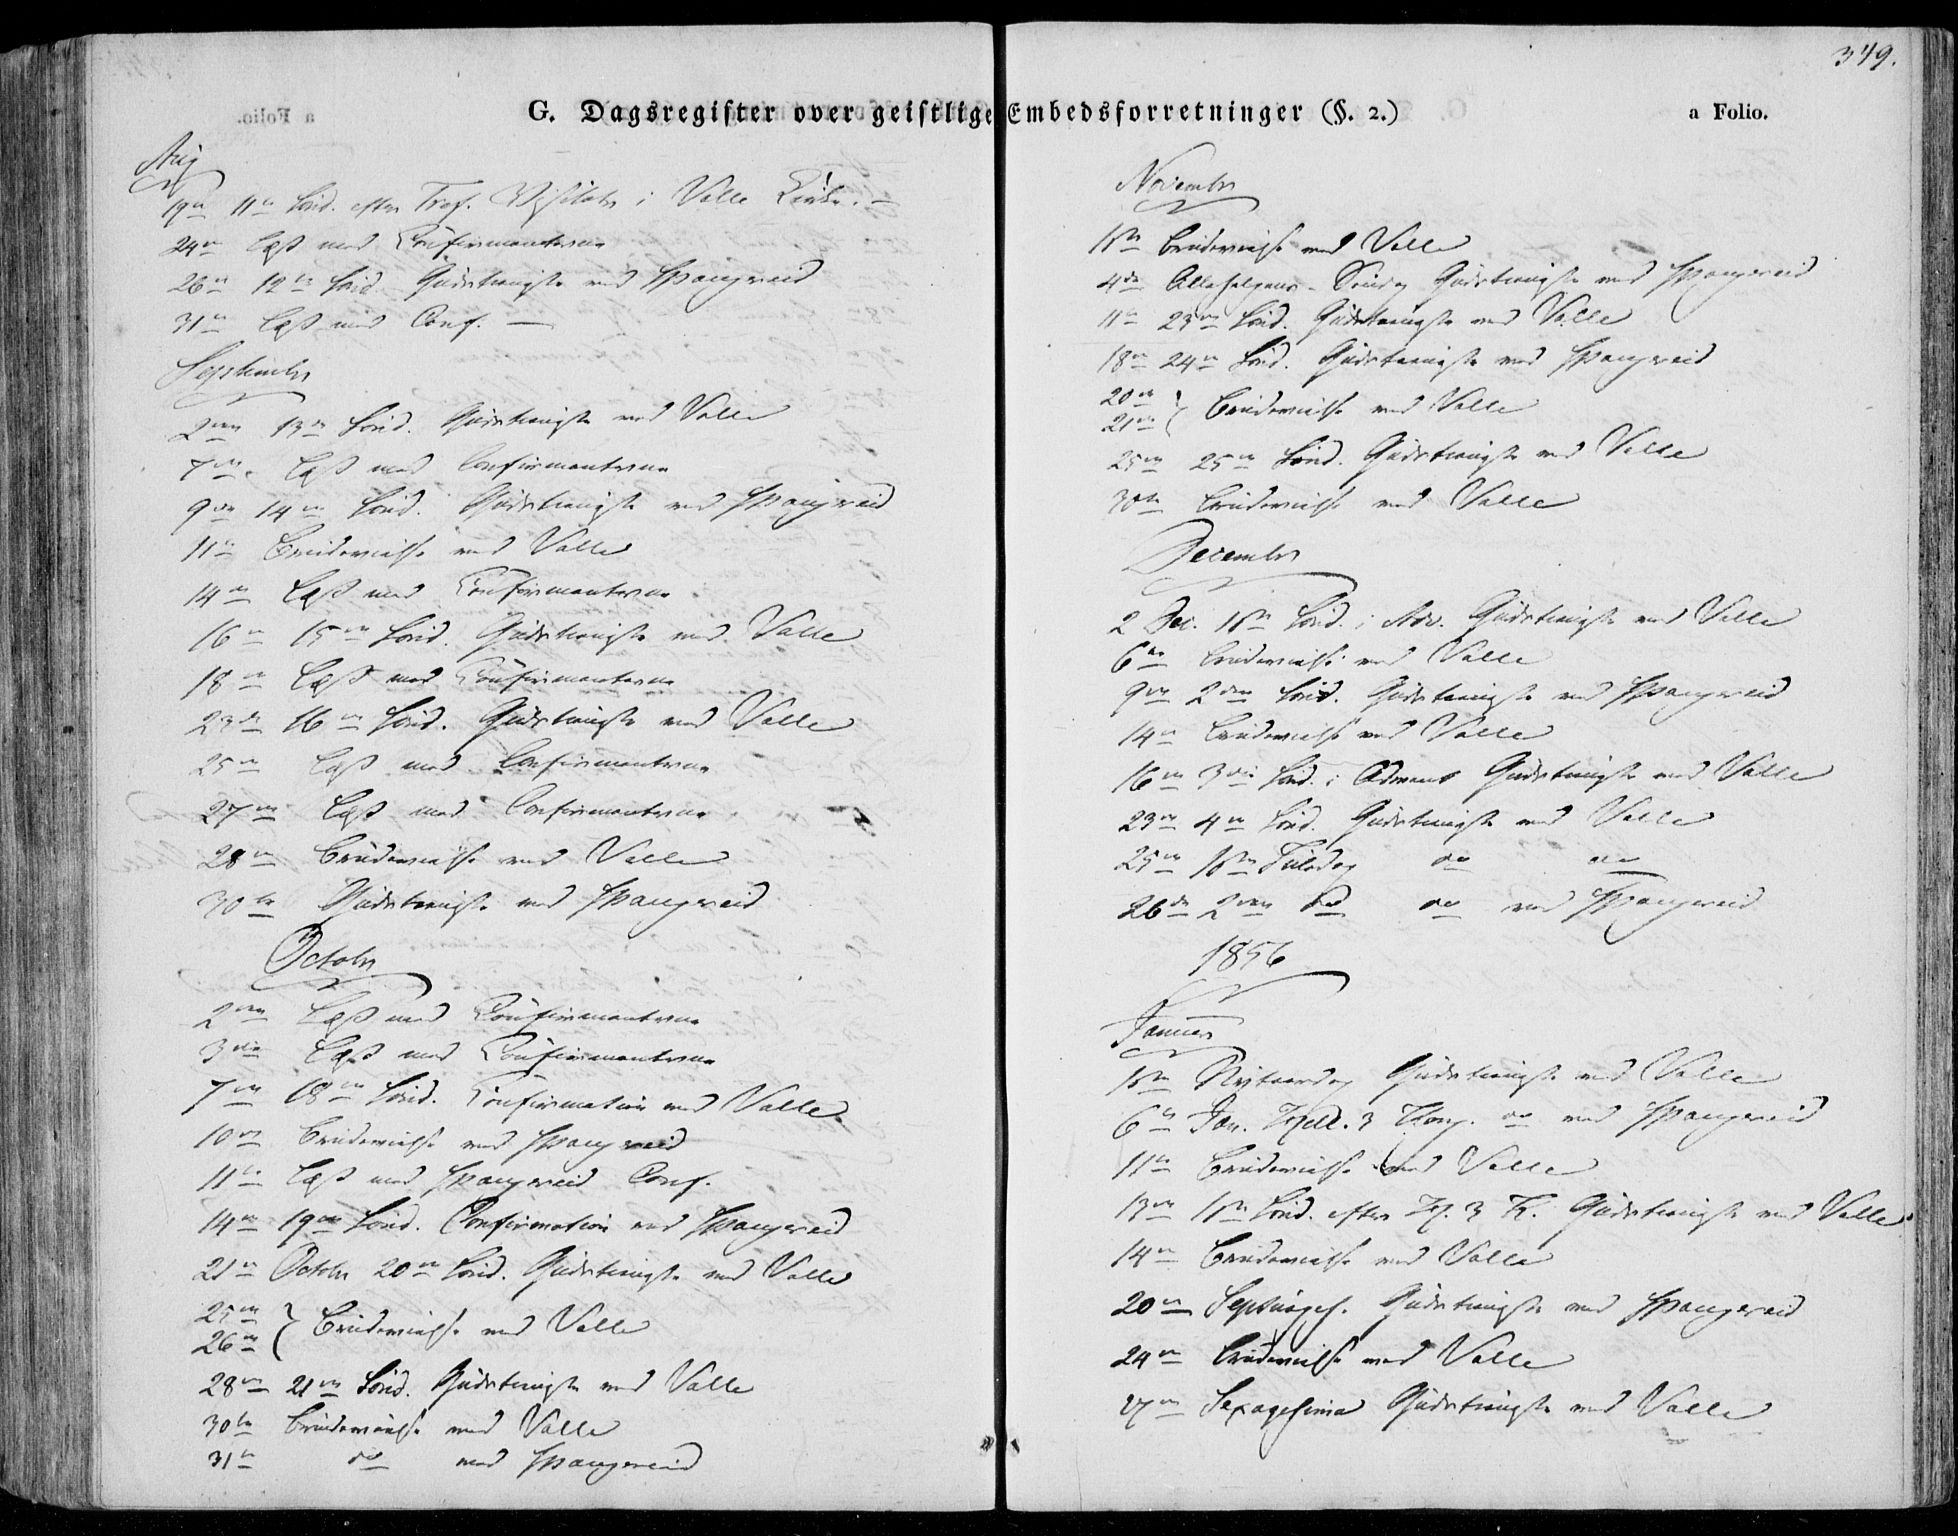 349.
G. Dagsregister over geistlige Embedsforretninger (§. 2.)
a Folio.
Aug
19de 11te Sønd. efter Tref. Visitats i Valle Kirke. –
24de Læst med Confirmanterne
26de 12te Sønd. Gudstieneste ved Spangereid
31te Læst med Conf. —
September
2den 13de Sønd. Gudstieneste ved Valle
7de Læst med Confirmanterne
9de 14de Sønd. Gudstieneste ved Spangereid
11te Brudevielse ved Valle
14de Læst med Confirmanterne
16de 15de Sønd. Gudstieneste ved Valle
18de Læst med Confirmanterne
23de 16de Sønd. Gudstieneste ved Valle
25de Læst med Confirmanterne
27de Læst med Confirmanterne
28de Brudevielse ved Valle
30te Gudstieneste ved Spangereid
October
2den Læst med Confirmanterne
3die Læst med Confirmanterne
7de 18de Sønd. Confirmation ved Valle
10de Brudevielse ved Spangereid
11te Læst med Spangereid Conf.
14de 19de Sønd. Confirmation ved Spangereid
21de October 20de Sønd. Gudstieneste ved Valle
25de
26de } Brudevielse ved Valle
28de 21de Sønd. Gudstieneste ved Valle
30te Brudevielse ved Valle
31te do ved Spangereid
November
1ste Brudevielse ved Valle
4de Allehelgens-Søndag Gudstieneste ved Spangereid
11te 23de Sønd. Gudstieneste ved Valle
18de 24de Sønd. Gudstieneste ved Spangereid
20de
21de } Brudevielse ved Valle
25de 25de Sønd. Gudstieneste ved Valle
30te Brudevielse ved Valle
December
2 Dec. 1ste Sønd. i Adv. Gudstieneste ved Valle
6te Brudevielse ved Valle
9de 2den Sønd. Gudstieneste ved Spangereid
14de Brudevielse ved Valle
16de 3die Sønd. i Advent Gudstieneste ved Valle
23de 4de Sønd. Gudstieneste ved Valle
25de 1ste Juledag do do
26de 2den do do ved Spangereid
1856
Januar
1ste Nytaarsdag Gudstieneste ved Valle
6te Jan. Hell. 3 Kong. do ved Spangereid
11te Brudevielse ved Valle
13de 1ste Sønd. efter H. 3 K. Gudstieneste ved Valle
14de Brudevielse ved Valle
20de Septuages. Gudstieneste ved Spangereid
24de Brudevielse ved Valle
27de Sexagesima Gudstieneste ved Valle